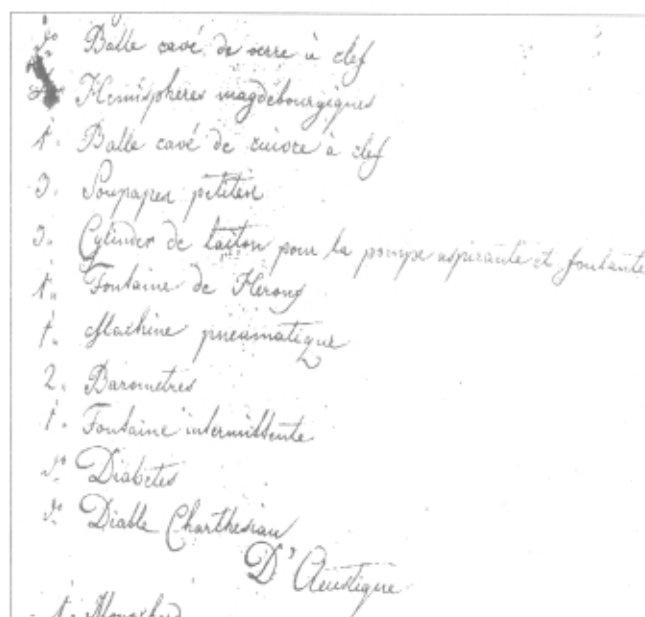 do Balle cavé de verre à clef
Hemisphères magdebourgiques
1. Balle cavé de cuivre à clef
3. Soupapes petites
3. Cylinder de laiton pour la pompe aspirante et foulante
1. Fontaine de Herons
1. Machine pneumatique
2. Barometres
1. Fontaine intermittente
do Diabetes
do Diable Charthesian
D'Acustique
1. Monochord